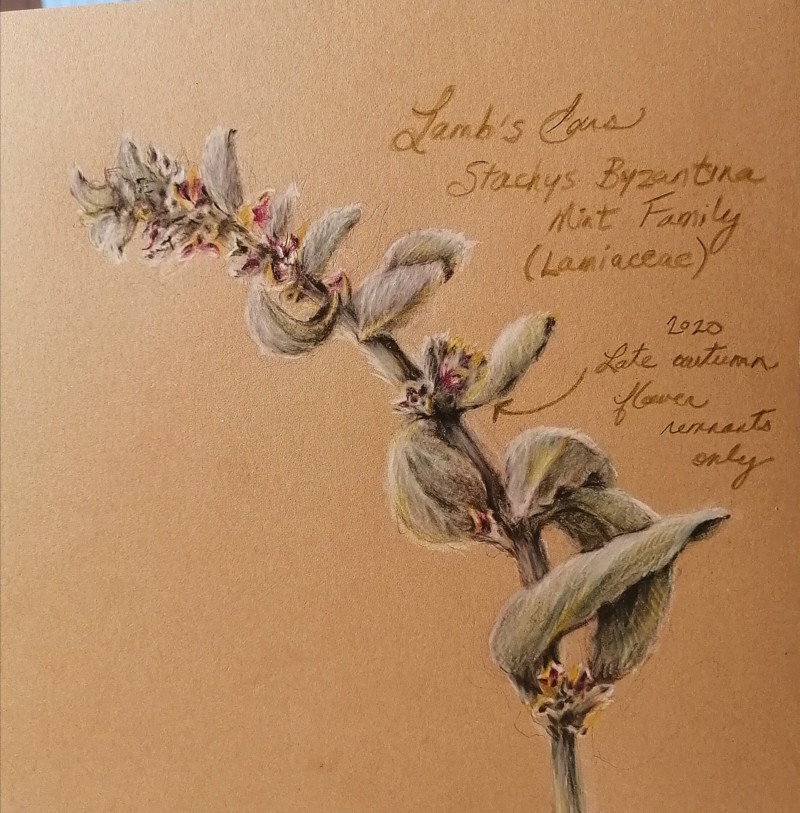 Lamb's Ears
Stachys Byzantina
Mint Family
(Lamiaceae)
2020
Late autumn
flower
remnants
only